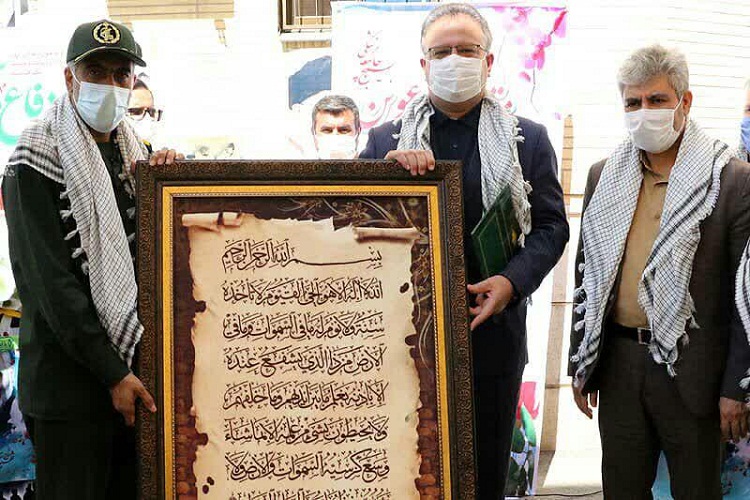 دفاع
بسم الله الرحمن الرحيم
الله لا إله إلا هو الحي القيوم لا تأخذه
سنة ولا نوم له ما في السموات وما في
الأرض من ذا الذي يشفع عنده
إلا بإذنه يعلم ما بين أيديهم وما خلفهم
ولا يحيطون بشيء من علمه إلا بما شاء
وسع كرسيه السموات والأرض ولا